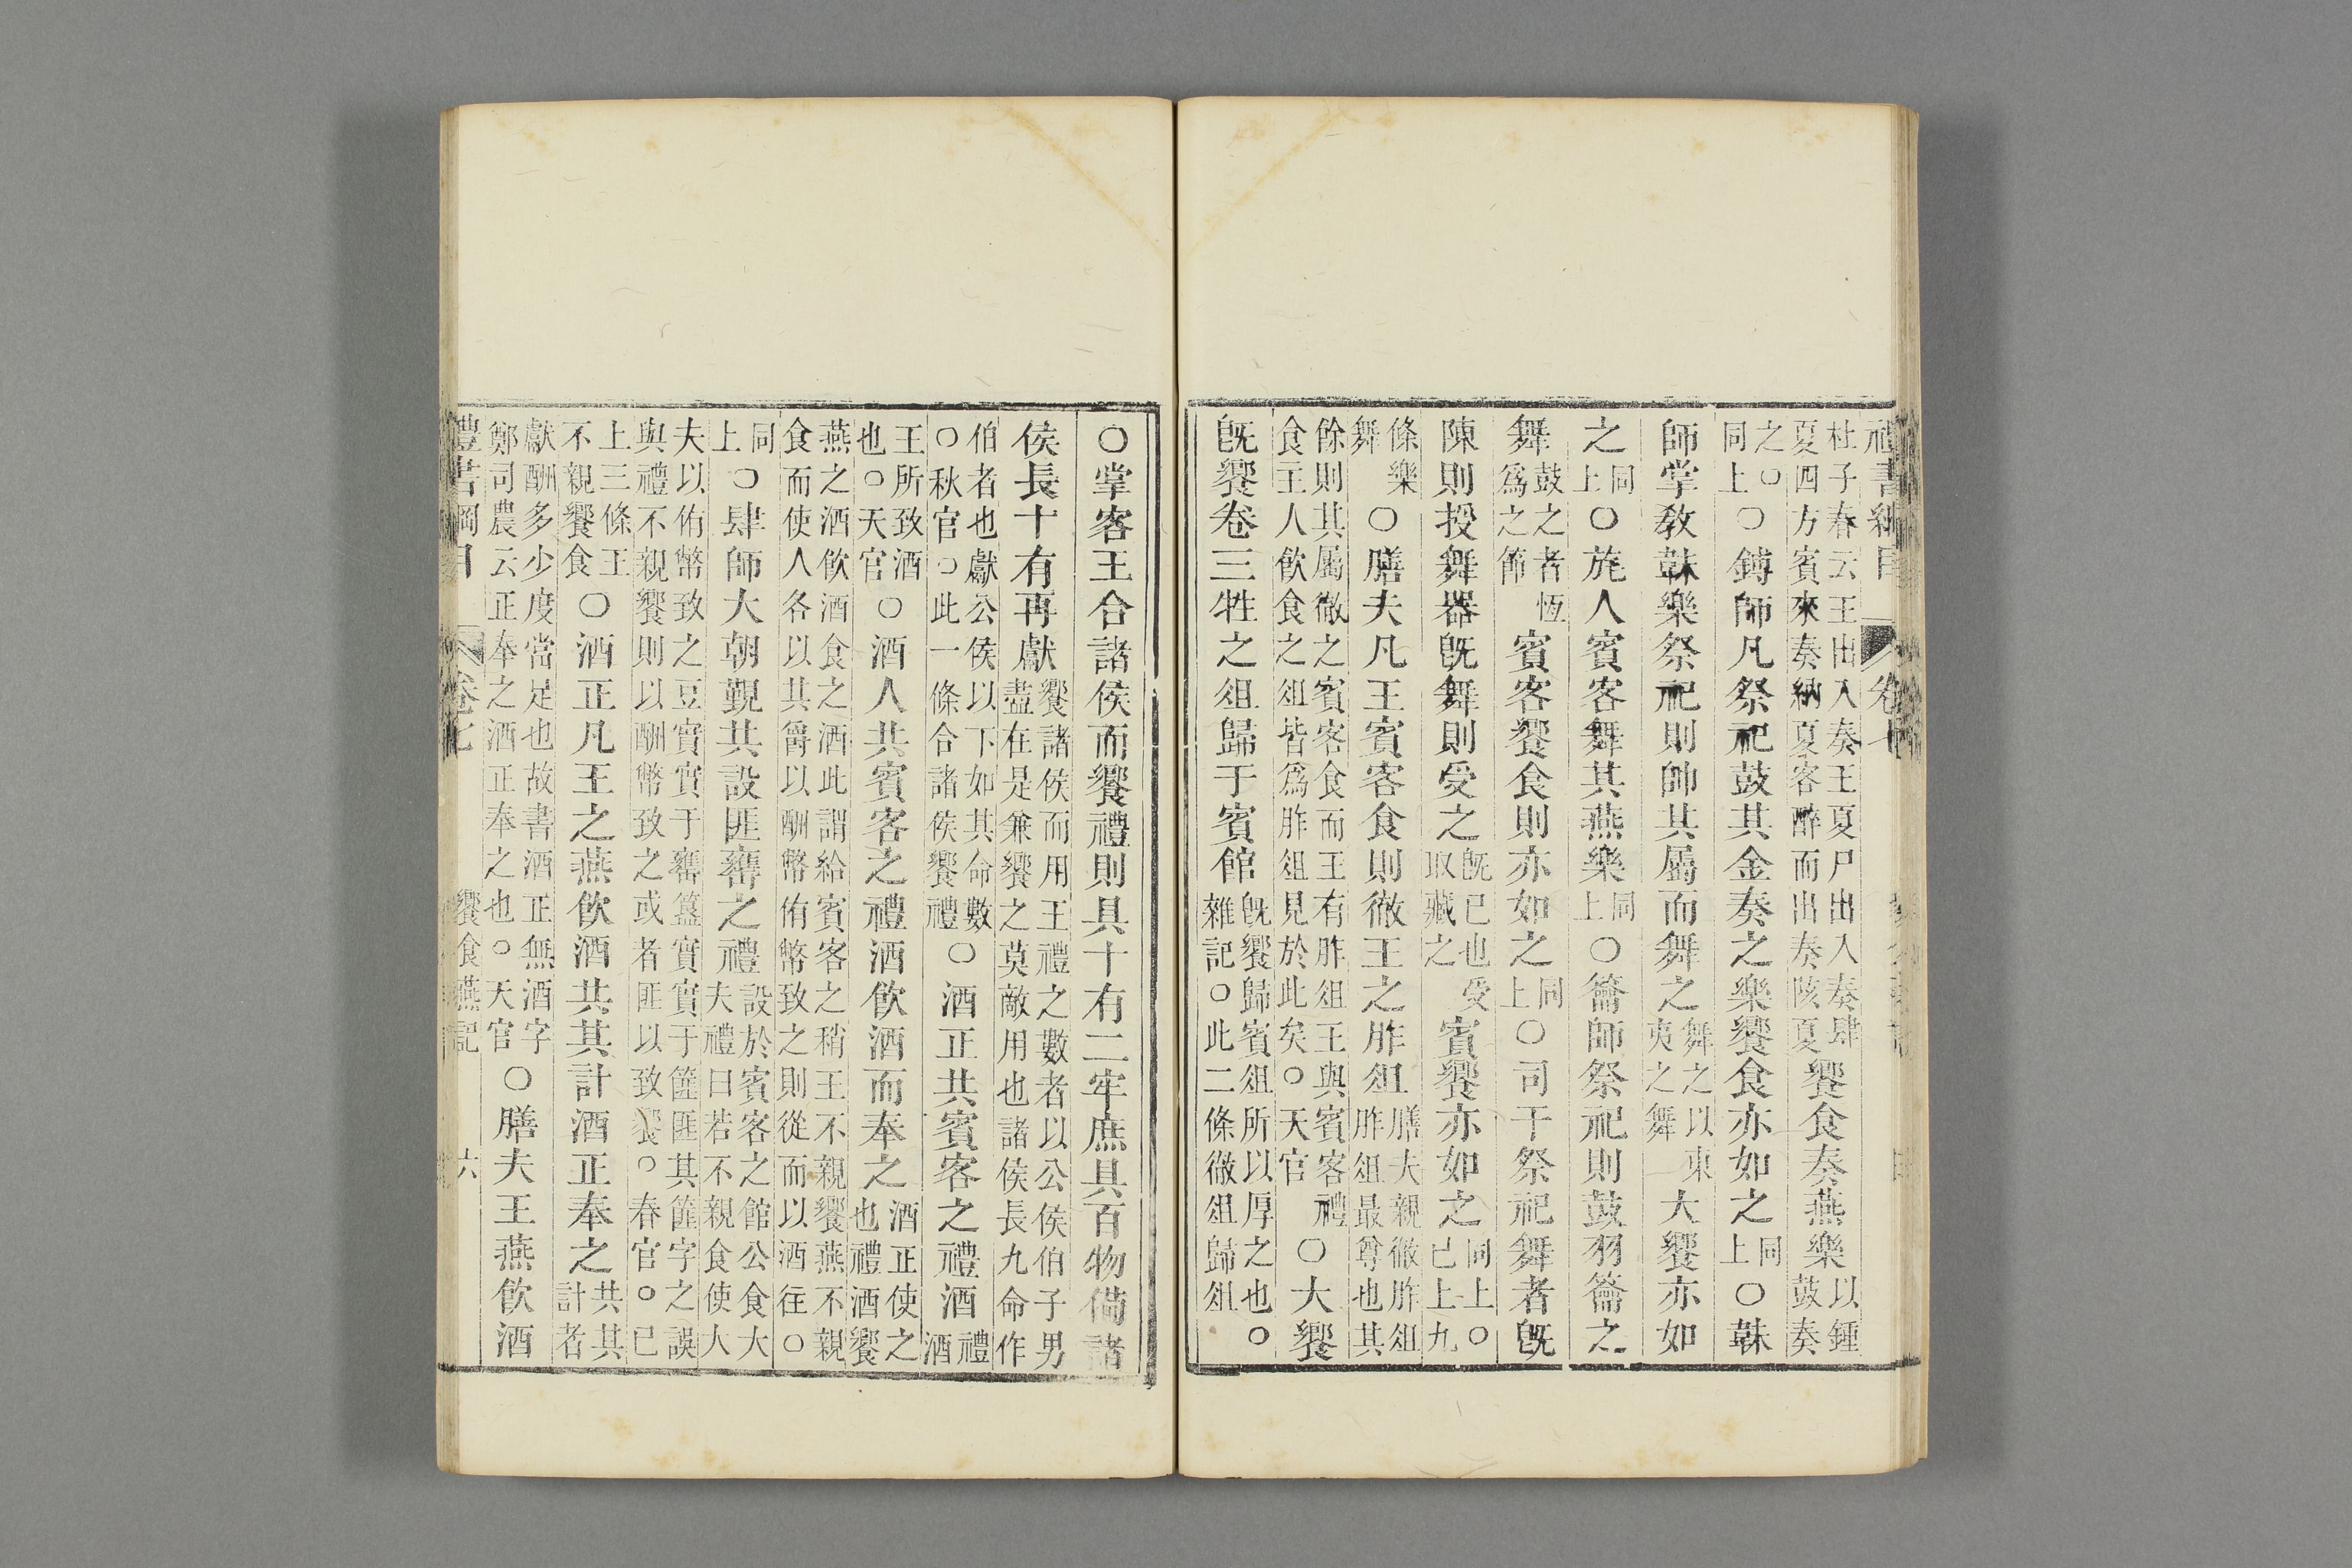 禮書綱目 卷七
杜子春云王出入奏王夏尸出入奏肆夏四方賓來奏納夏客醉而出奏陔夏饗食奏燕樂以鍾鼓奏
之○同上○鎛師凡祭祀鼓其金奏之樂饗食亦如之同上○韎
師掌教韎樂祭祀則帥其屬而舞之舞之以東夷之舞大饗亦如
之同上○旄人賓客舞其燕樂同上○籥師祭祀則鼓羽籥之
舞鼓之者恆爲之節賓客饗食則亦如之同上○司干祭祀舞者旣
陳則授舞器旣舞則受之旣已也受取藏之賓饗亦如之同上○已上九
條樂舞○膳夫凡王賓客食則徹王之胙俎膳夫親徹胙俎胙俎最尊也其
餘則其屬徹之賓客食而王有胙俎王與賓客禮食主人飮食之俎皆爲胙俎見於此矣○天官○大饗
旣饗卷三牲之俎歸于賓館旣饗歸賓俎所以厚之也○雜記○此二條徹俎歸俎
○掌客王合諸侯而饗禮則具十有二牢庶具百物備諸
侯長十有再獻饗諸侯而用王禮之數者以公侯伯子男盡在是兼饗之莫敵用也諸侯長九命作
伯者也獻公侯以下如其命數○秋官○此一條合諸侯饗禮○酒正共賓客之禮酒禮酒
王所致酒也○天官○酒人共賓客之禮酒飮酒而奉之酒正使之也禮酒饗
燕之酒飮酒食之酒此謂給賓客之稍王不親饗燕不親食而使人各以其爵以酬幣侑幣致之則從而以酒往○
同上○肆師大朝覲共設匪罋之禮設於賓客之館公食大夫禮曰若不親食使大
夫以侑幣致之豆實實于罋簋實實于篚匪其篚字之誤與禮不親饗則以酬幣致之或者匪以致饗○春官○已
上三條王不親饗食○酒正凡王之燕飮酒共其計酒正奉之共其計者
獻酬多少度當足也故書酒正無酒字鄭司農云正奉之酒正奉之也○天官○膳夫王燕飮酒
禮書綱目 卷七 饗食燕記 六